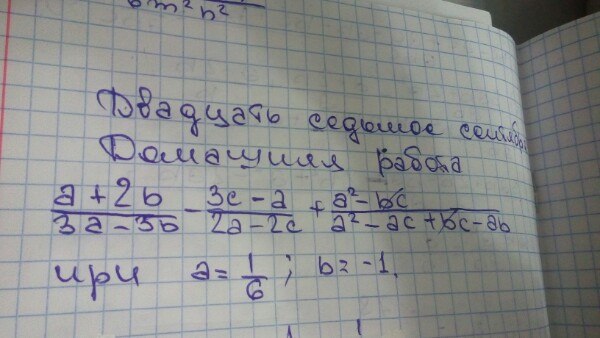 6m²n²
Двадцать седьмое сентября
Домашняя работа
(a+2b)/(3a-3b) - (3c-a)/(2a-2c) + (a²-bc)/(a²-ac+bc-ab)
при a=1/6; b=-1,